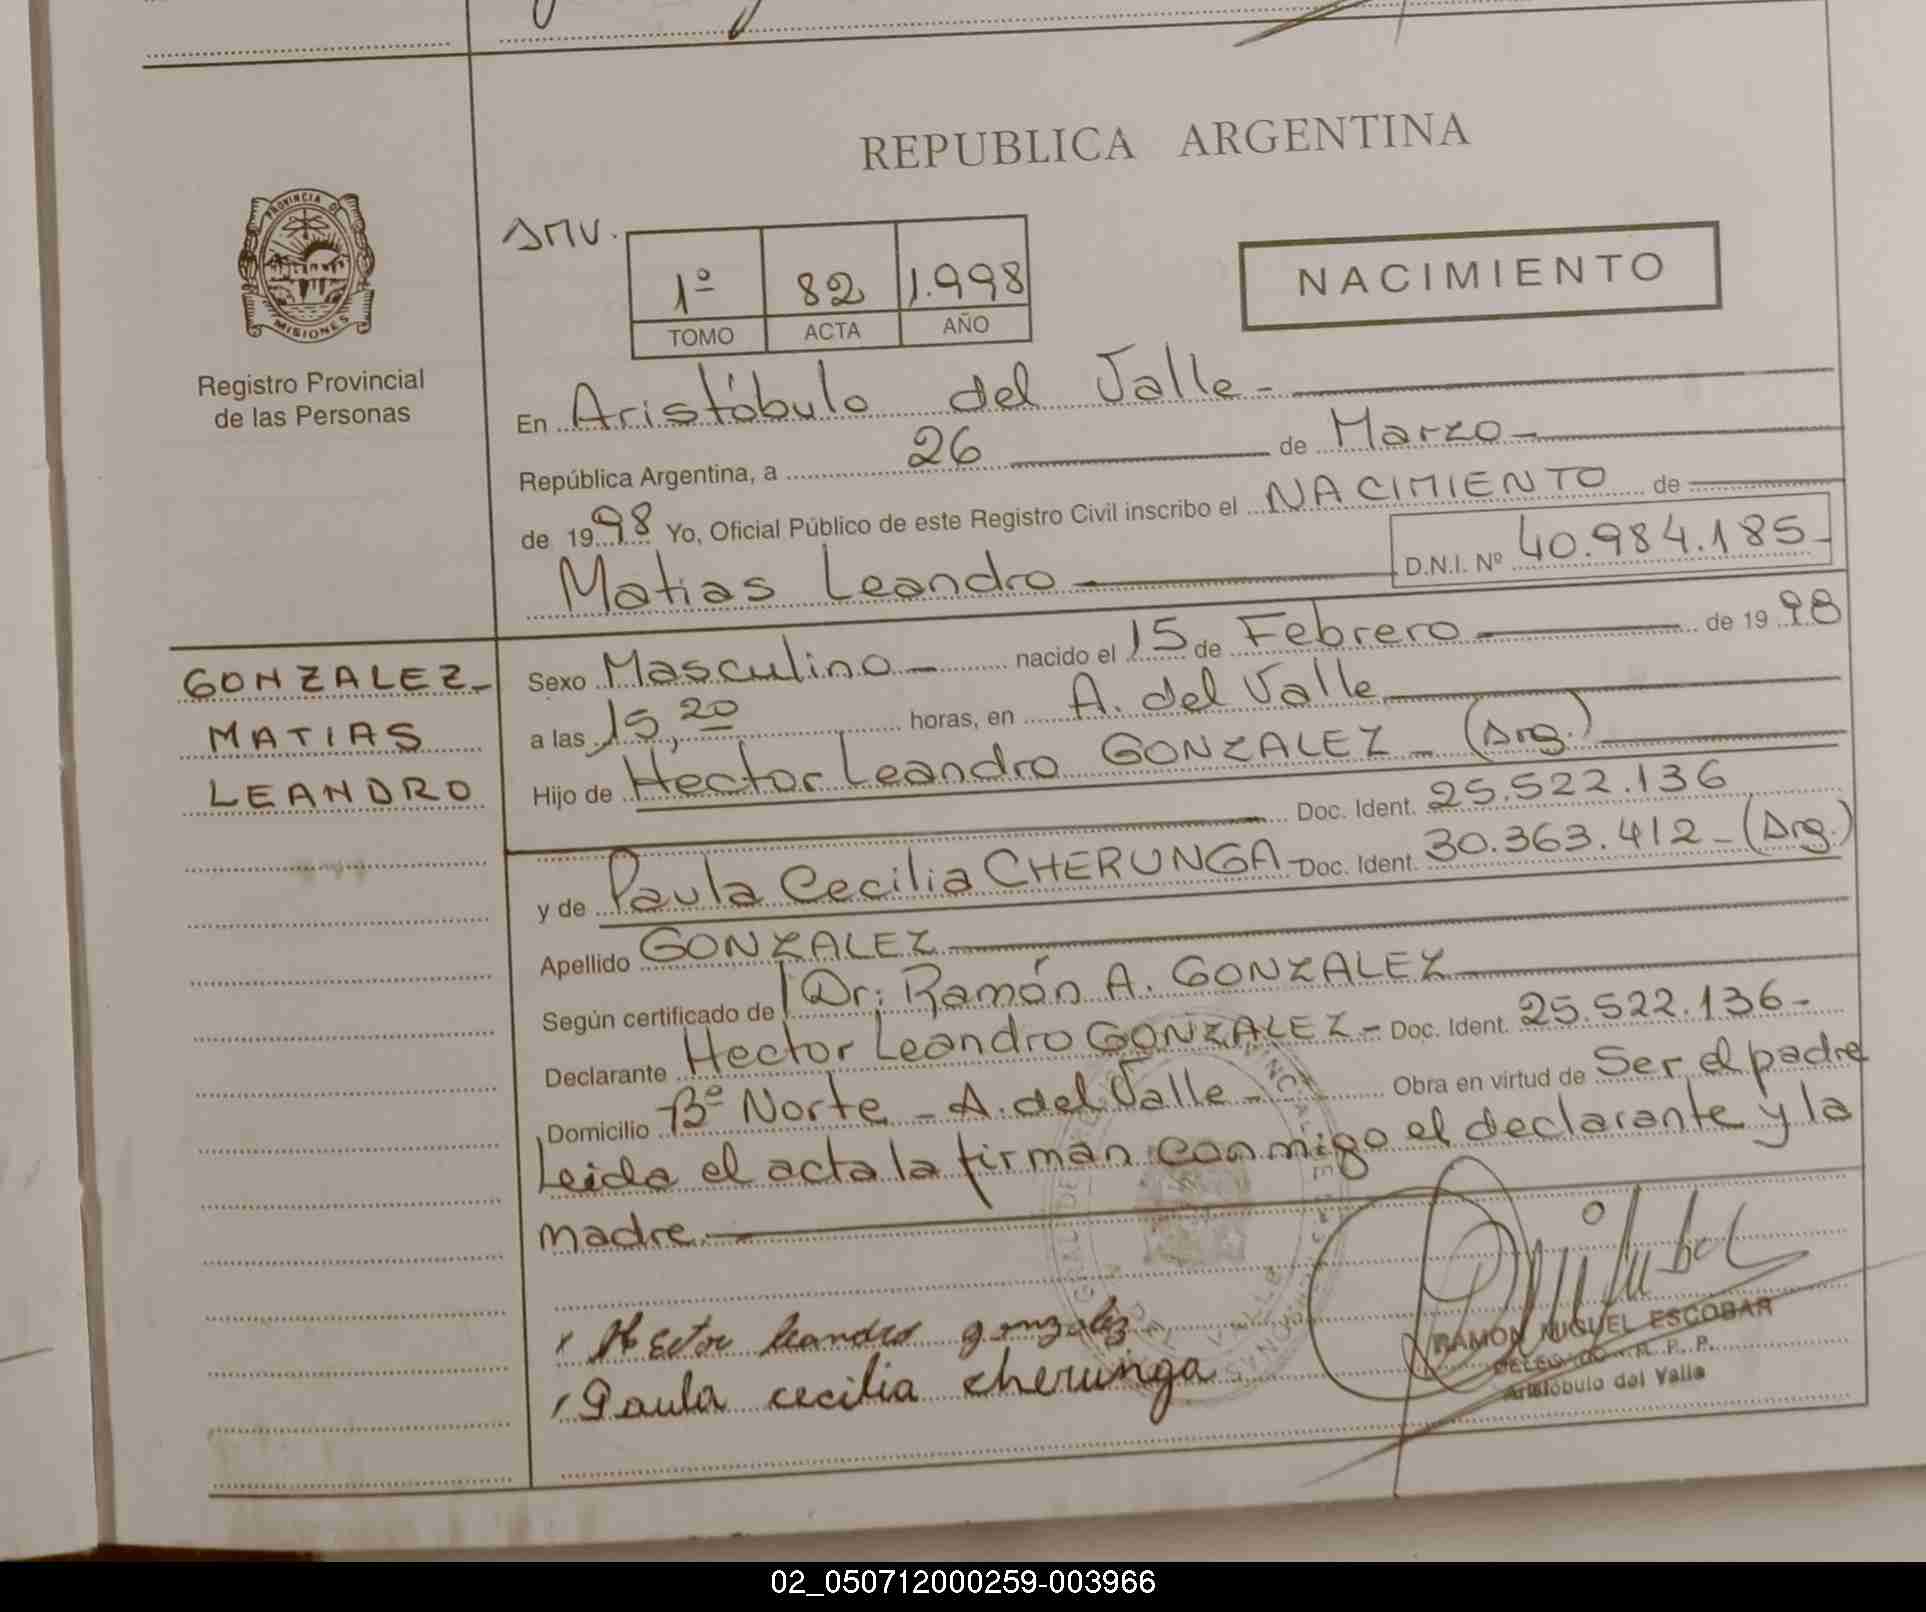 REPUBLICA ARGENTINA
PROVINCIA D
MISIONES
Registro Provincial
de las Personas
SMV.
1º 82 1.998
TOMO ACTA AÑO
NACIMIENTO
En Aristóbulo del Valle-
República Argentina, a 26 de Marzo-
de 1998 Yo, Oficial Público de este Registro Civil inscribo el NACIMIENTO de
Matias Leandro- D.N.I. Nº 40.984.185-
GONZALEZ-
MATIAS
LEANDRO
Sexo Masculino- nacido el 15 de Febrero- de 1998
a las 15,20 horas, en A. del Valle
Hijo de Hector Leandro GONZALEZ- (Arg.)
Doc. Ident. 25.522.136
y de Paula Cecilia CHERUNGA- Doc. Ident. 30.363.412-(Arg.)
Apellido GONZALEZ
Según certificado de Dr: Ramón A. GONZALEZ
Declarante Hector Leandro GONZALEZ- Doc. Ident. 25.522.136-
Domicilio Bº Norte - A. del Valle- Obra en virtud de Ser el padre
Leida el acta la firman conmigo el declarante y la
madre.
Hector leandro gonzalez
Paula cecilia cherunga
RAMON MIGUEL ESCOBAR
DELEGADO R. P. P.
Aristóbulo del Valle
02_050712000259-003966